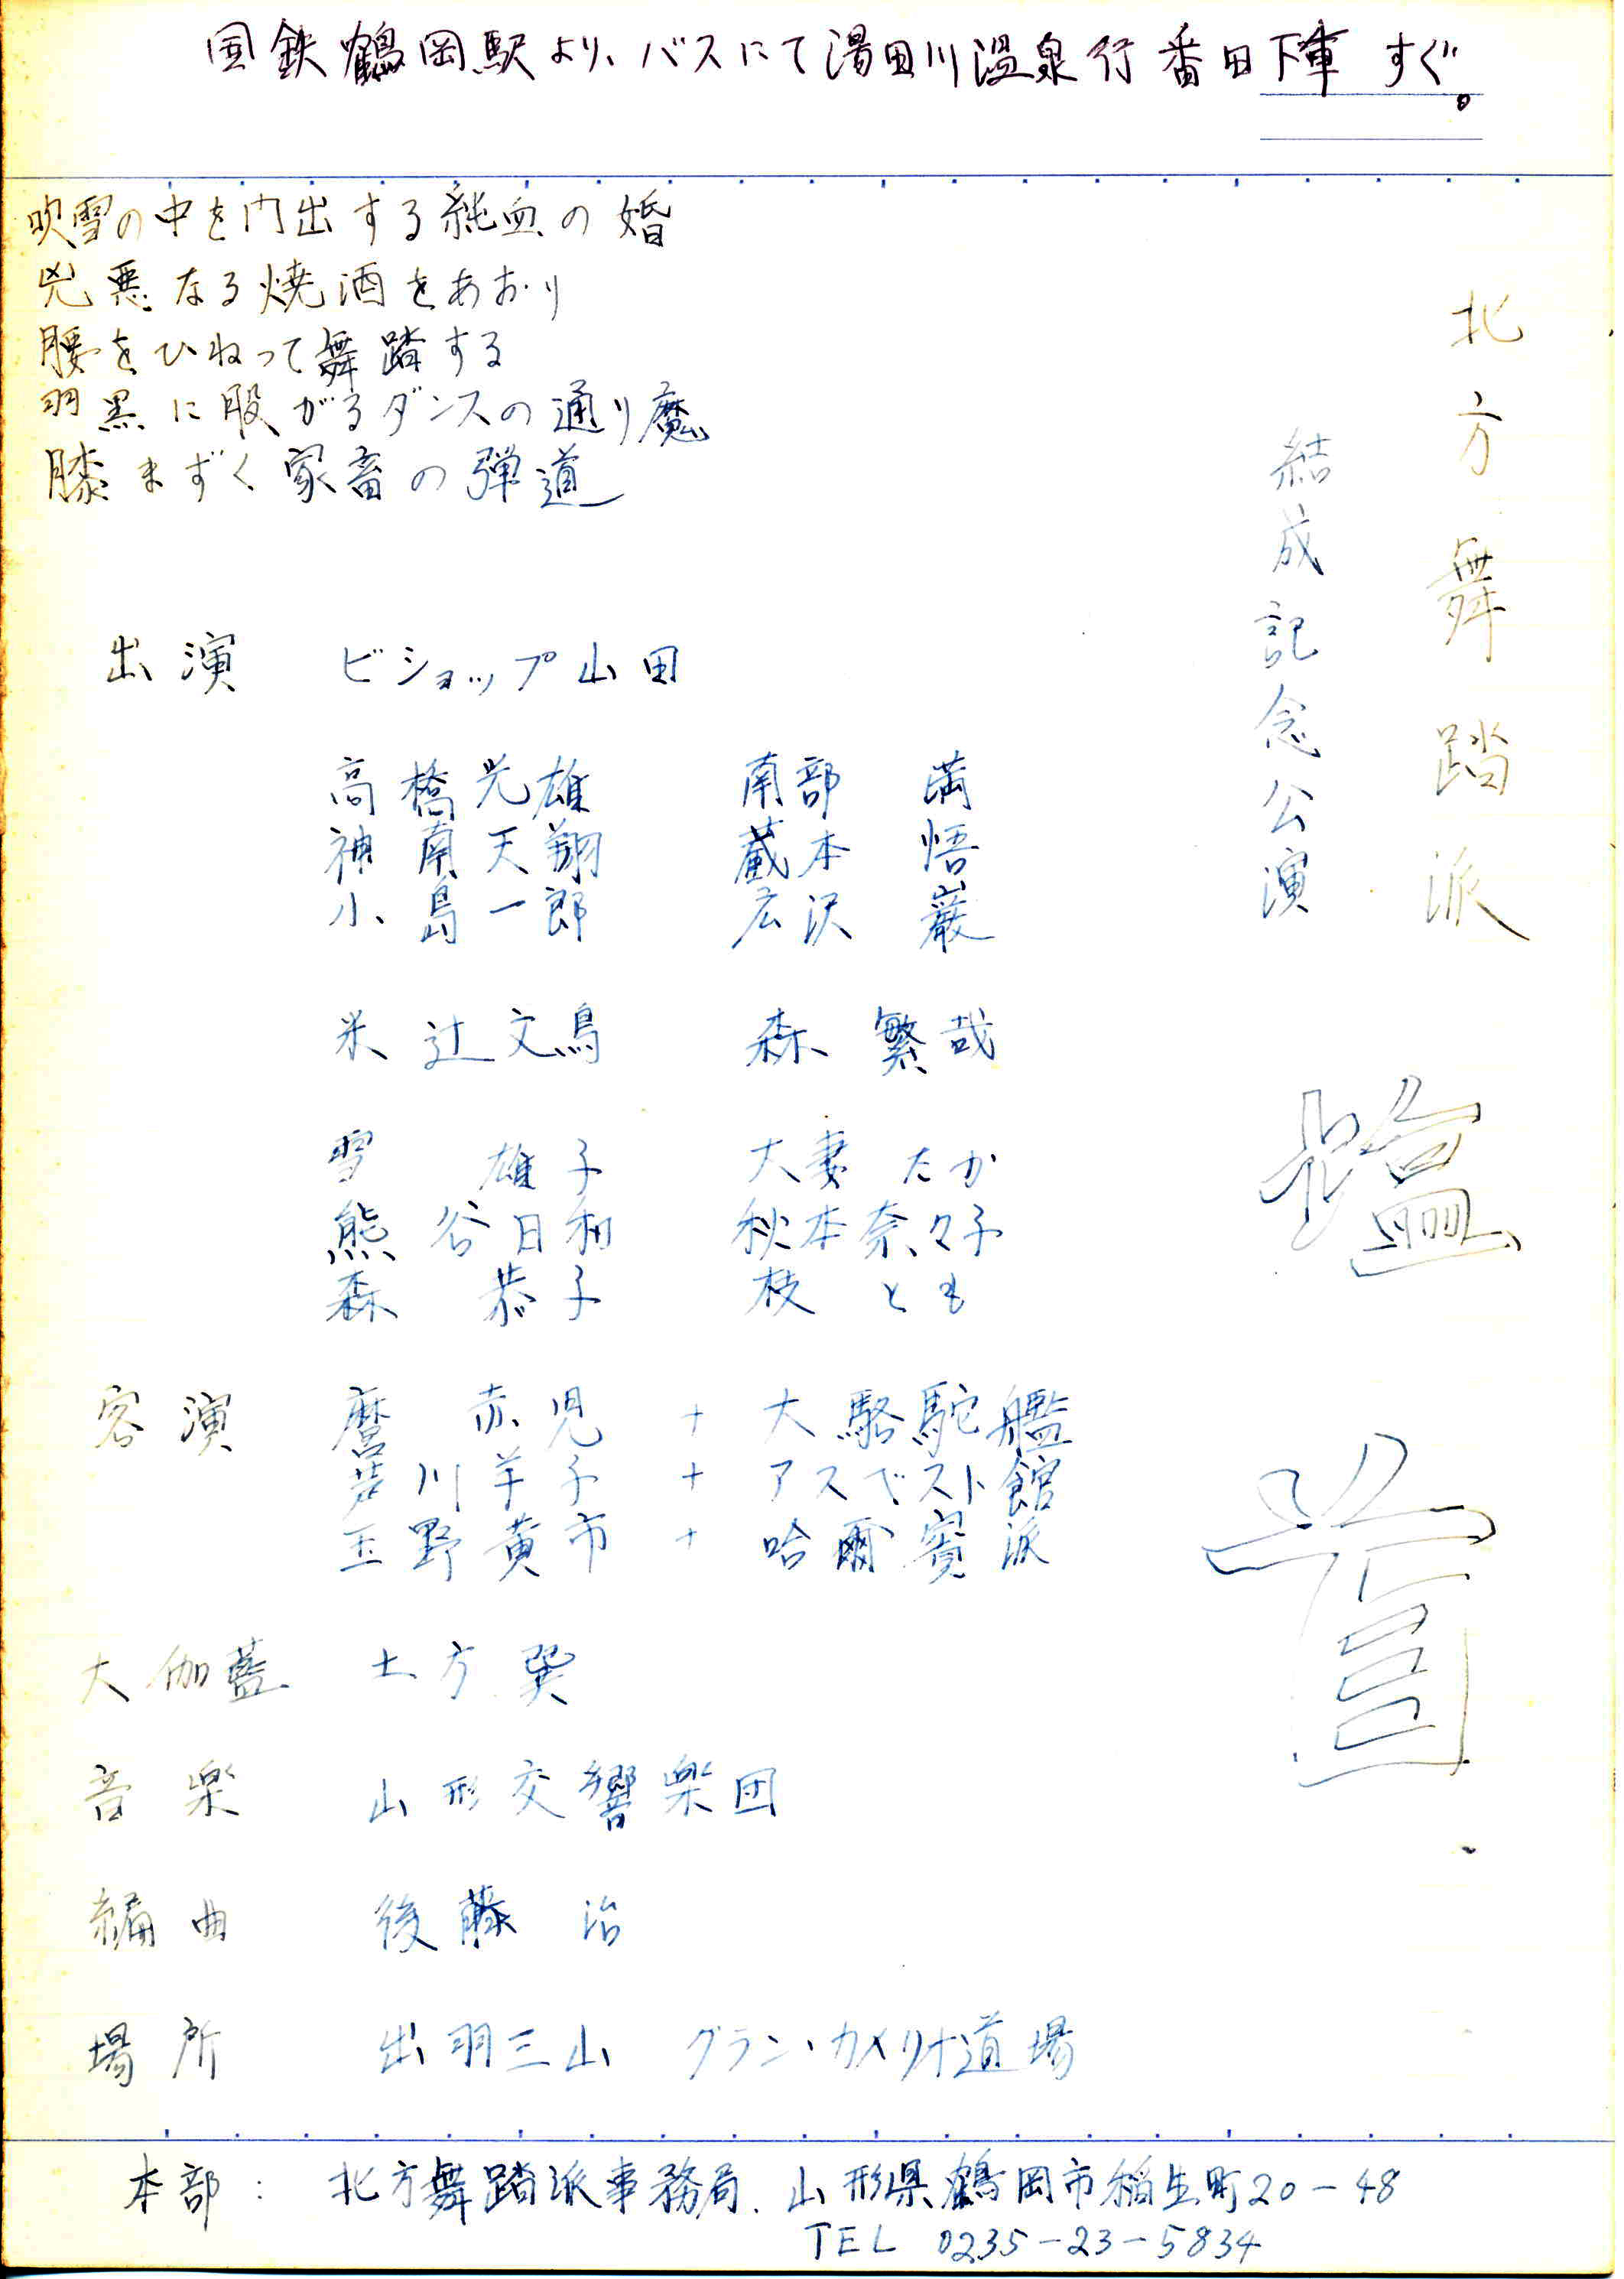 国鉄鶴岡駅より、バスにて湯田川温泉行番田下車 すぐ。
北方舞踏派
結成記念公演
塩首
吹雪の中を門出する純血の婚
兇悪なる焼酒をあおり
腰をひねって舞踏する
羽黒に股がるダンスの通り魔
膝まずく家畜の弾道
出演 ビショップ山田
高橋光雄 南部 満
神南天翔 蔵本 悟
小島一郎 広沢 巌
米辻文鳥 森 繁哉
雪 雄子 大妻 たか
熊谷日和 秋本奈々子
森 恭子 枝 とも
客演 麿 赤児 + 大駱駝艦
芦川羊子 + アスベスト館
玉野黄市 + 哈爾賓派
大伽藍 土方巽
音楽 山形交響楽団
編曲 後藤 治
場所 出羽三山 グラン・カメリオ道場
本部: 北方舞踏派事務局、山形県鶴岡市稲生町20-48
TEL 0235-23-5834